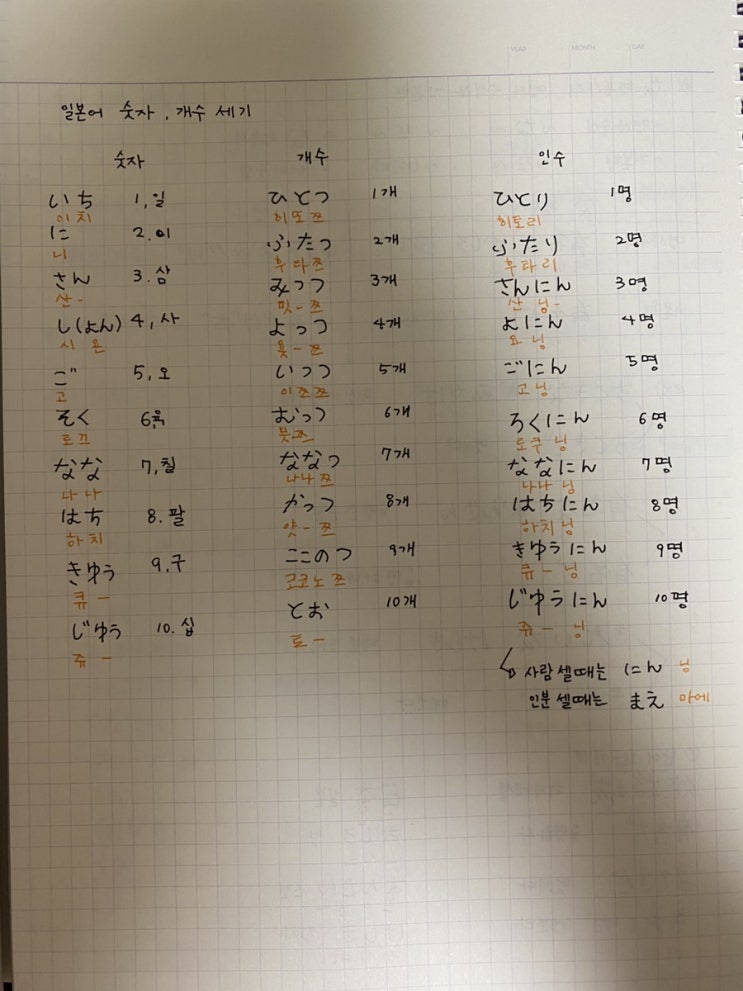 YEAR MONTH DAY
일본어 숫자, 개수 세기
숫자 개수 인수
いち 1, 일 ひとつ 1개 ひとり 1명
이치 히또쯔 히토리
に 2. 이 ふたつ 2개 ふたり 2명
니 후타쯔 후타리
さん 3. 삼 みっつ 3개 さんにん 3명
산- 밋-쯔 산닝-
し(よん) 4, 사 よっつ 4개 よにん 4명
시 욘 욧-쯔 요닝
ご 5, 오 いつつ 5개 ごにん 5명
고 이쯔쯔 고닝
そく 6육 むっつ 6개 ろくにん 6명
로끄 뭇쯔 로쿠닝
なな 7, 칠 ななつ 7개 ななにん 7명
나나 나나쯔 나나닝
はち 8. 팔 かっつ 8개 はちにん 8명
하치 얏-쯔 하치닝
きゆう 9, 구 ここのつ 9개 きゆうにん 9명
큐- 코코노쯔 큐-닝
じゆう 10. 십 とお 10개 じゆうにん 10명
쥬- 토- 쥬-닝
사람 셀때는 にん 닝
인분 셀때는 まえ 마에